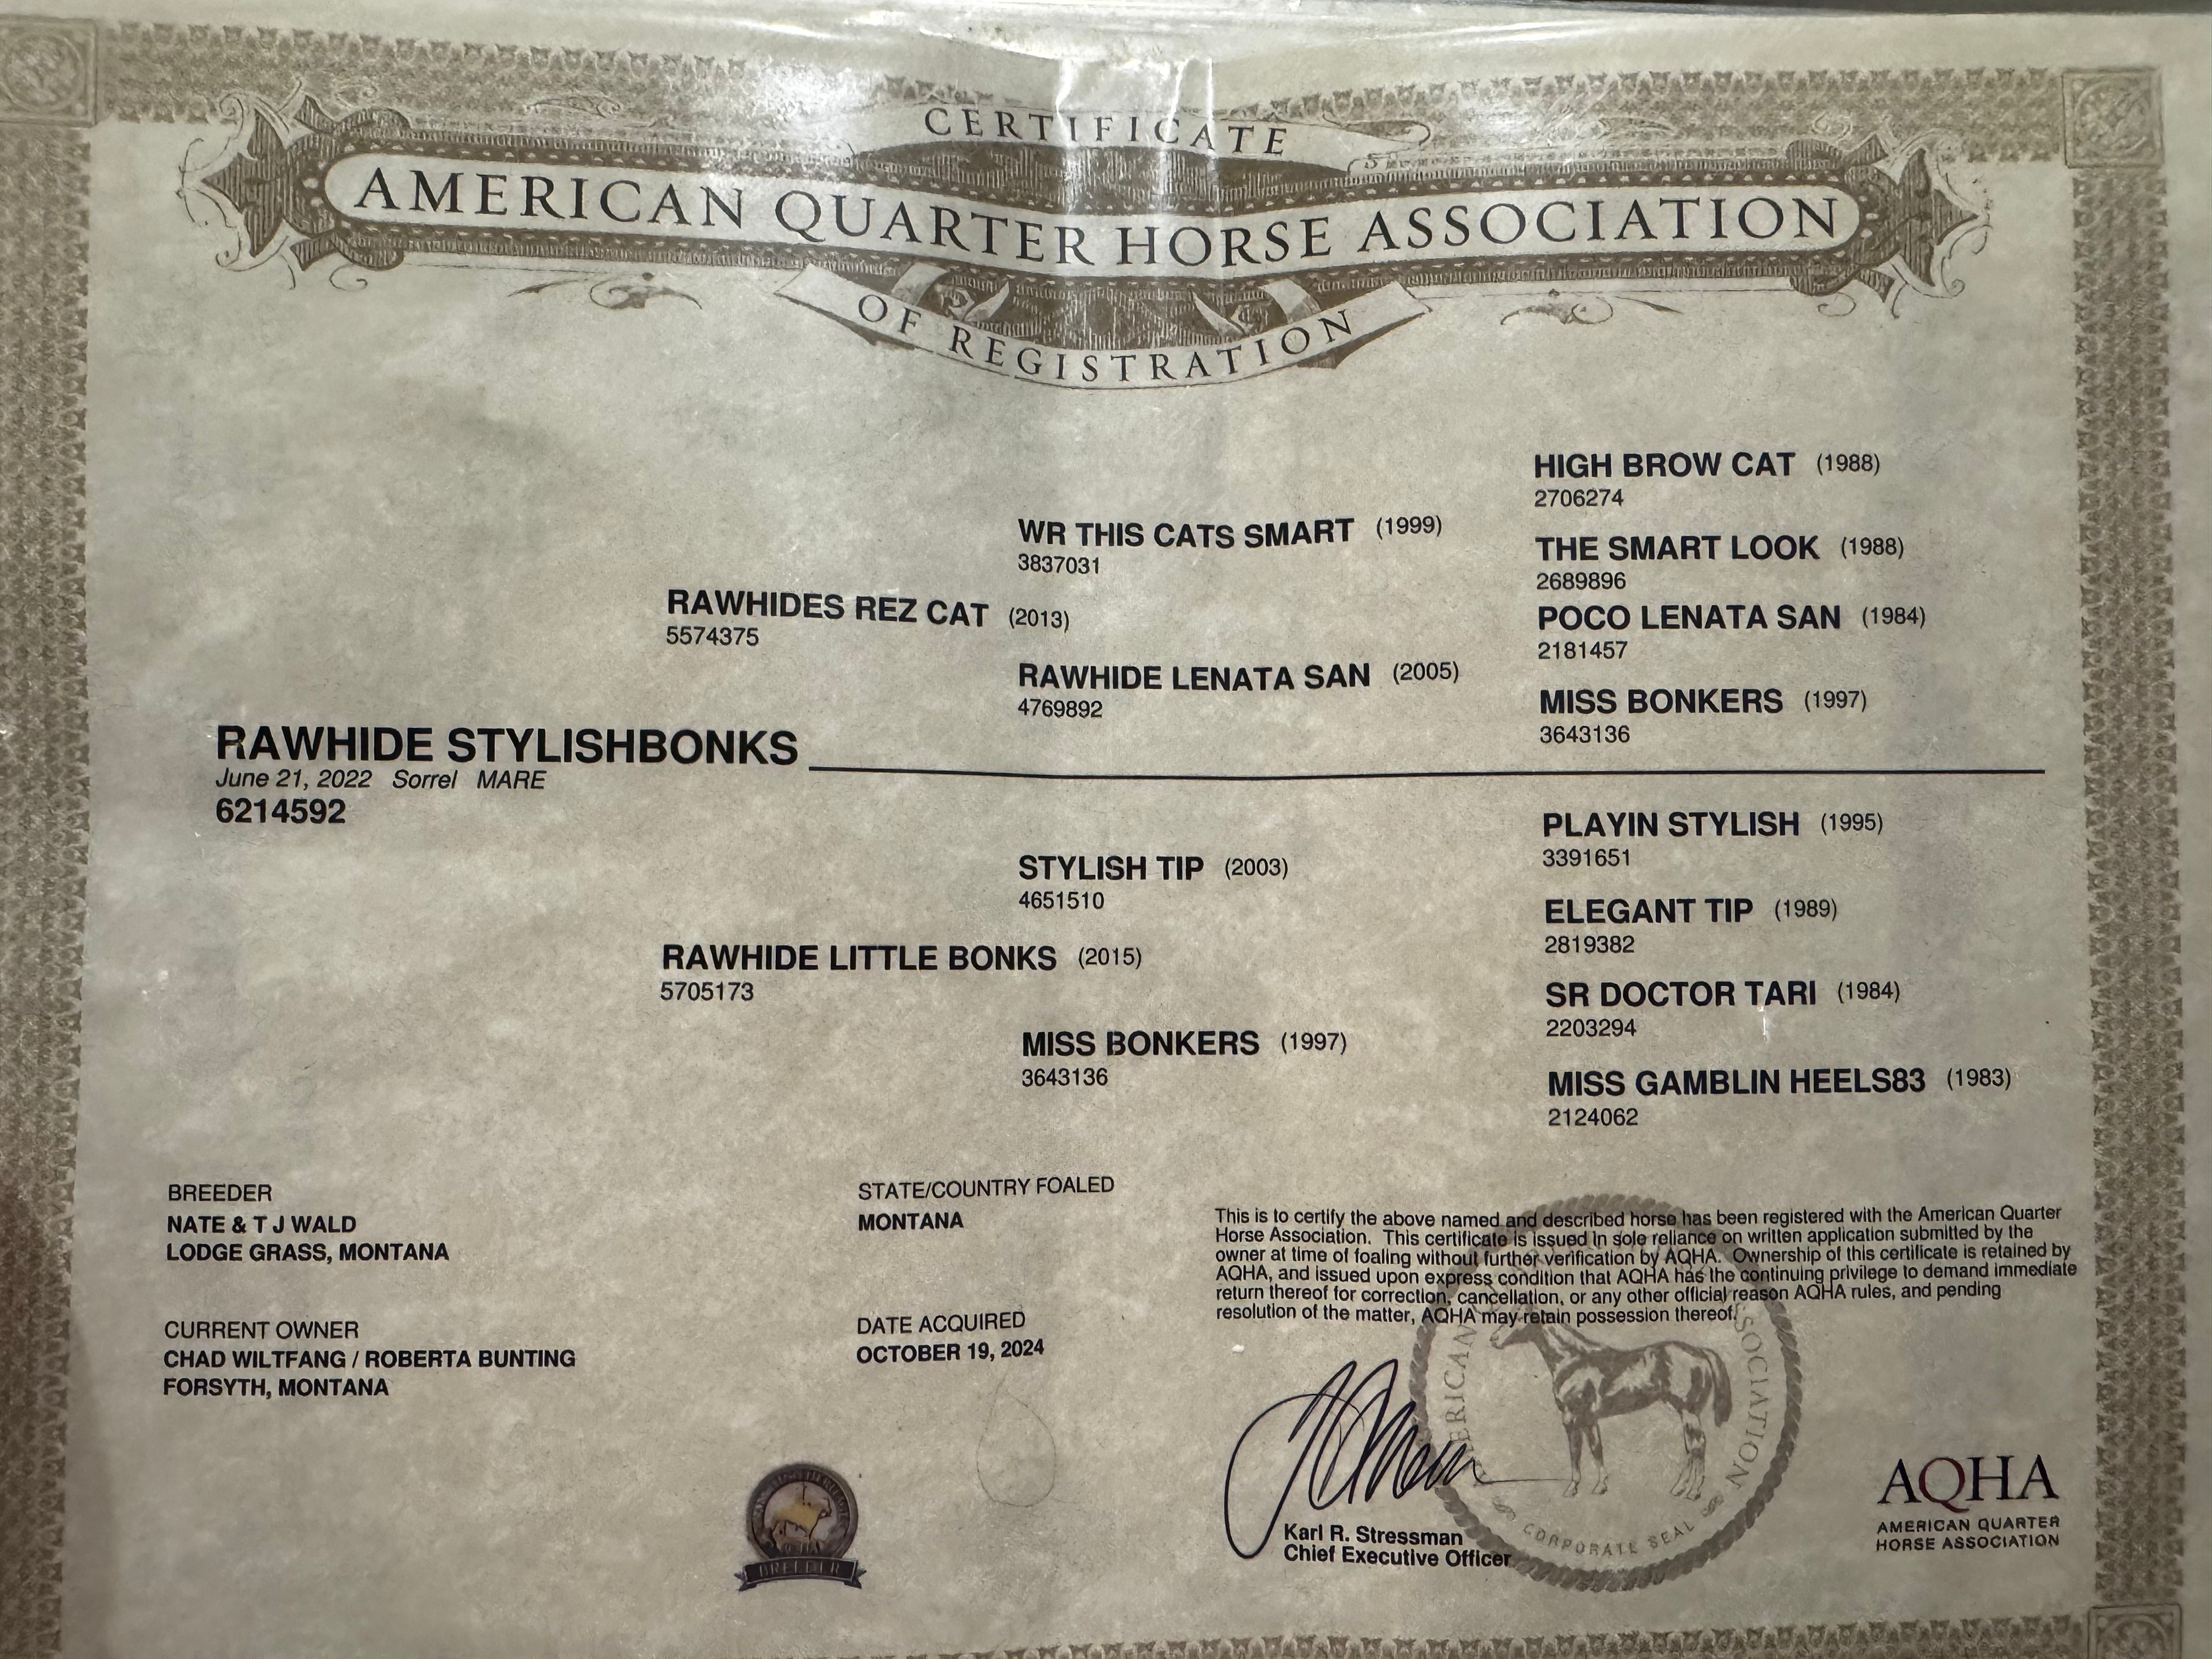 CERTIFICATE
AMERICAN QUARTER HORSE ASSOCIATION
OF REGISTRATION
HIGH BROW CAT (1988)
2706274
WR THIS CATS SMART (1999)
3837031
THE SMART LOOK (1988)
2689896
RAWHIDES REZ CAT (2013)
5574375
POCO LENATA SAN (1984)
2181457
RAWHIDE LENATA SAN (2005)
4769892
MISS BONKERS (1997)
3643136
RAWHIDE STYLISHBONKS
June 21, 2022 Sorrel MARE
6214592
PLAYIN STYLISH (1995)
3391651
STYLISH TIP (2003)
4651510
ELEGANT TIP (1989)
2819382
RAWHIDE LITTLE BONKS (2015)
5705173
SR DOCTOR TARI (1984)
2203294
MISS BONKERS (1997)
3643136
MISS GAMBLIN HEELS83 (1983)
2124062
BREEDER
NATE & T J WALD
LODGE GRASS, MONTANA
STATE/COUNTRY FOALED
MONTANA
CURRENT OWNER
CHAD WILTFANG / ROBERTA BUNTING
FORSYTH, MONTANA
DATE ACQUIRED
OCTOBER 19, 2024
This is to certify the above named and described horse has been registered with the American Quarter
Horse Association. This certificate is issued in sole reliance on written application submitted by the
owner at time of foaling without further verification by AQHA. Ownership of this certificate is retained by
AQHA, and issued upon express condition that AQHA has the continuing privilege to demand immediate
return thereof for correction, cancellation, or any other official reason AQHA rules, and pending
resolution of the matter, AQHA may retain possession thereof.
Karl R. Stressman
Chief Executive Officer
CORPORATE SEAL
BREEDER
AQHA
AMERICAN QUARTER
HORSE ASSOCIATION